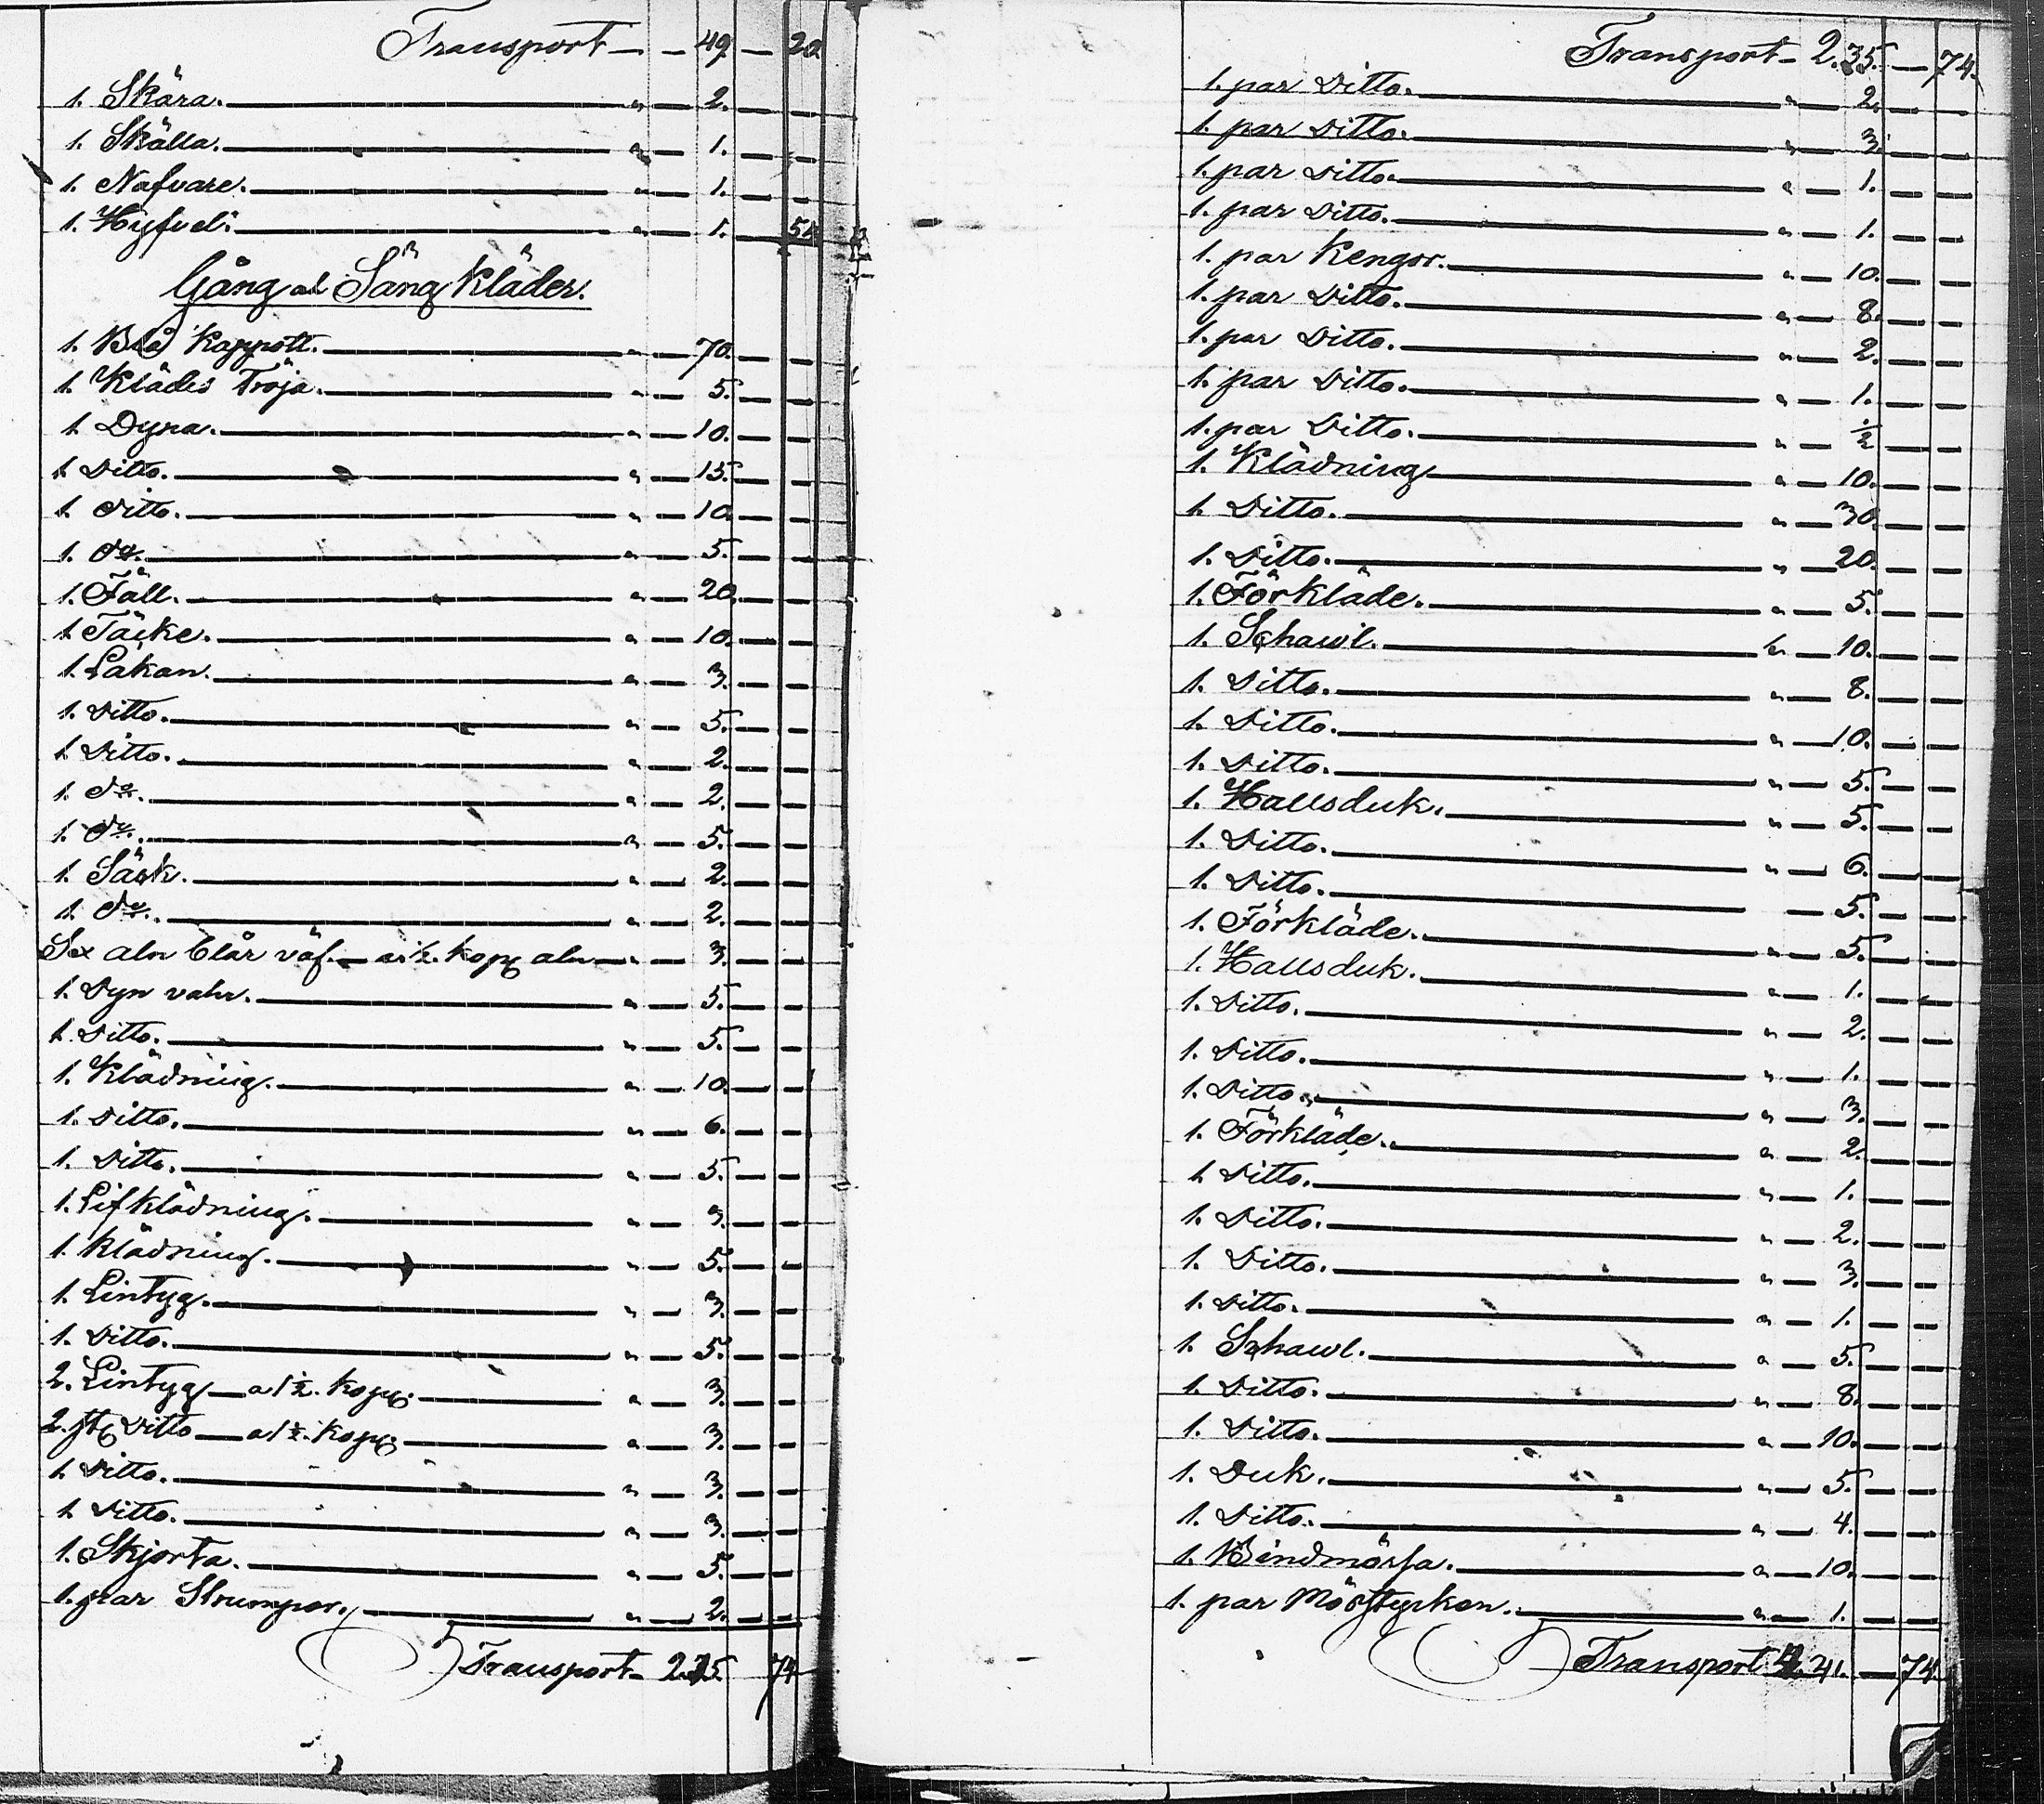 Transport — — 49. — 20.
1. Skära. — " — 2. — —
1. Skälla. — " — 1. — —
1. Nafvare. — " — 1. — —
1. Hyfvel. — " — 1. — 54
Gång och Säng Kläder.
1. Blå Kappott. — " — 70. — —
1. Klädes Tröja. — " — 5. — —
1. Dyna. — " — 10. — —
1. Ditto. — " — 15. — —
1. Ditto. — " — 10. — —
1. do. — " — 5. — —
1. Fäll. — " — 20. — —
1. Täcke. — " — 10. — —
1. Lakan. — " — 3. — —
1. Ditto. — " — 5. — —
1. Ditto. — " — 2. — —
1. do. — " — 2. — —
1. do. — " — 5. — —
1. Säck. — " — 2. — —
1. do. — " — 2. — —
Sex aln blår väf. — a ½. kop aln — " — 3. — —
1. Dyn vahr. — " — 5. — —
1. Ditto. — " — 5. — —
1. Klädning. — " — 10. — —
1. Ditto. — " — 6. — —
1. Ditto. — " — 5. — —
1. Lifklädning. — " — 3. — —
1. Klädning. — " — 5. — —
1. Lintyg. — " — 3. — —
1. Ditto. — " — 5. — —
2. Lintyg — a 1½. kop. — " — 3. — —
2. st Ditto — a 1½. kop. — " — 3. — —
1. Ditto. — " — 3. — —
1. Ditto. — " — 3. — —
1. Skjorta. — " — 5. — —
1. par Strumpor. — " — 2. — —
Transport — 2.35. 74
Transport — 2.35. — 74.
1. par Ditto. — " — 2. — —
1. par Ditto. — " — 3. — —
1. par Ditto. — " — 1. — —
1. par Ditto. — " — 1. — —
1. par Kengor. — " — 10. — —
1. par Ditto. — " — 8. — —
1. par Ditto. — " — 2. — —
1. par Ditto. — " — 1. — —
1. par Ditto. — " — ½ — —
1. Klädning — " — 10. — —
1. Ditto. — " — 30. — —
1. Ditto. — " — 20. — —
1. Förkläde. — " — 5. — —
1. Schawl. — " — 10. — —
1. Ditto. — " — 8. — —
1. Ditto. — " — 10. — —
1. Ditto. — " — 5. — —
1. Hallsduk. — " — 5. — —
1. Ditto. — " — 6. — —
1. Ditto. — 5. — —
1. Förkläde. — " — 5. — —
1. Hallsduk. — " — 1. — —
1. Ditto. — " — 2. — —
1. Ditto. — " — 1. — —
1. Ditto. — " — 3. — —
1. Förkläde. — " — 2. — —
1. Ditto. — " — 1. — —
1. Ditto. — " — 2. — —
1. Ditto. — " — 3. — —
1. Ditto. — " — 1. — —
1. Schawl. — " — 5. — —
1. Ditto. — " — 8. — —
1. Ditto. — " — 10. — —
1. Duk. — " — 5. — —
1. Ditto. — " — 4. — —
1. Bindmössa. — " — 10. — —
1. par Mösstycken. — " — 1. — —
Transport 4.41. — 74.